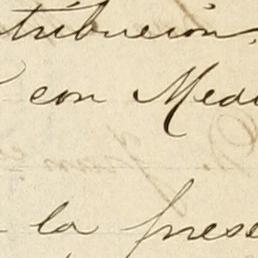 tribucion.
con Medi
la prese